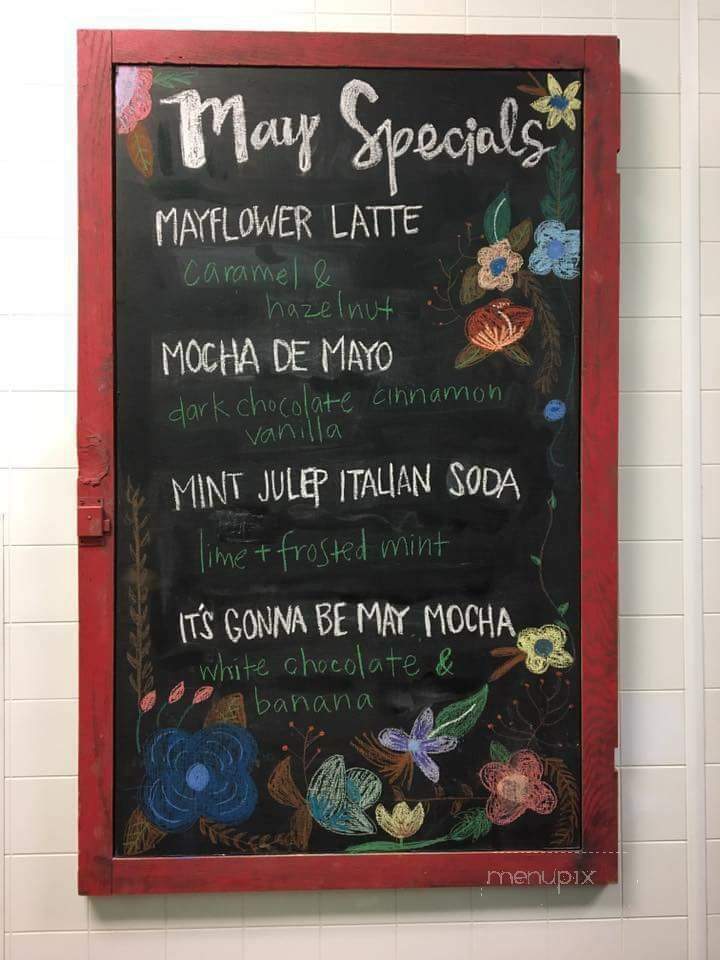 May Specials
MAYFLOWER LATTE
caramel &
hazelnut
MOCHA DE MAYO
dark chocolate cinnamon
vanilla
MINT JULEP ITALIAN SODA
lime + frosted mint
IT'S GONNA BE MAY MOCHA
white chocolate &
banana
menupix